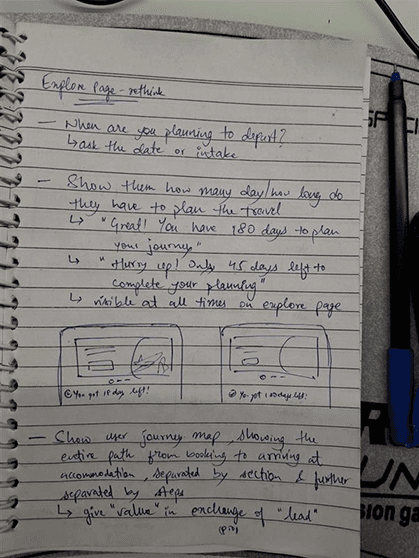 Explore Page - rethink
— When are you planning to depart?
↳ ask the date or intake
— Show them how many day/how long do
they have to plan the travel
↳ "Great! You have 180 days to plan
your journey"
↳ "Hurry up! Only 45 days left to
complete your planning"
↳ visible at all times on explore page
You got 18 day left!
You got 180 days left!
— Show user journey map, showing the
entire path from booking to arriving at
accomodation, separated by section & further
separated by steps
↳ give "value" in exchange of "lead"
SPEC
UN
sion ga